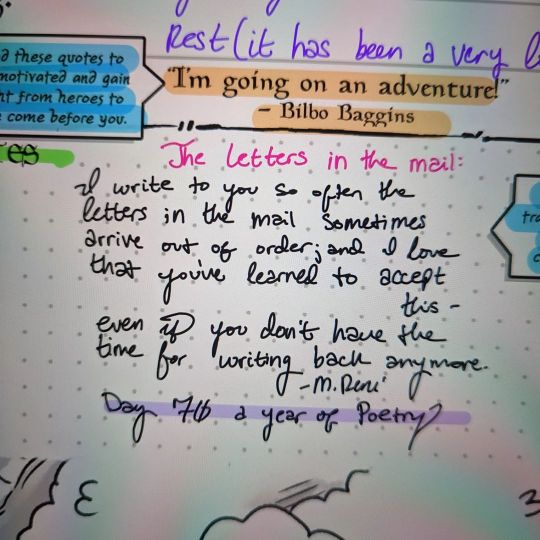 Rest (it has been a very
these quotes to
motivated and gain
from heroes to
come before you.
"I'm going on an adventure!"
– Bilbo Baggins
es
The letters in the mail:
I write to you so often the
letters in the mail sometimes
arrive out of order; and I love
that you've learned to accept
this –
even if you don't have the
time for writing back anymore.
– M. Dene'
Day 76 a year of Poetry
3
3